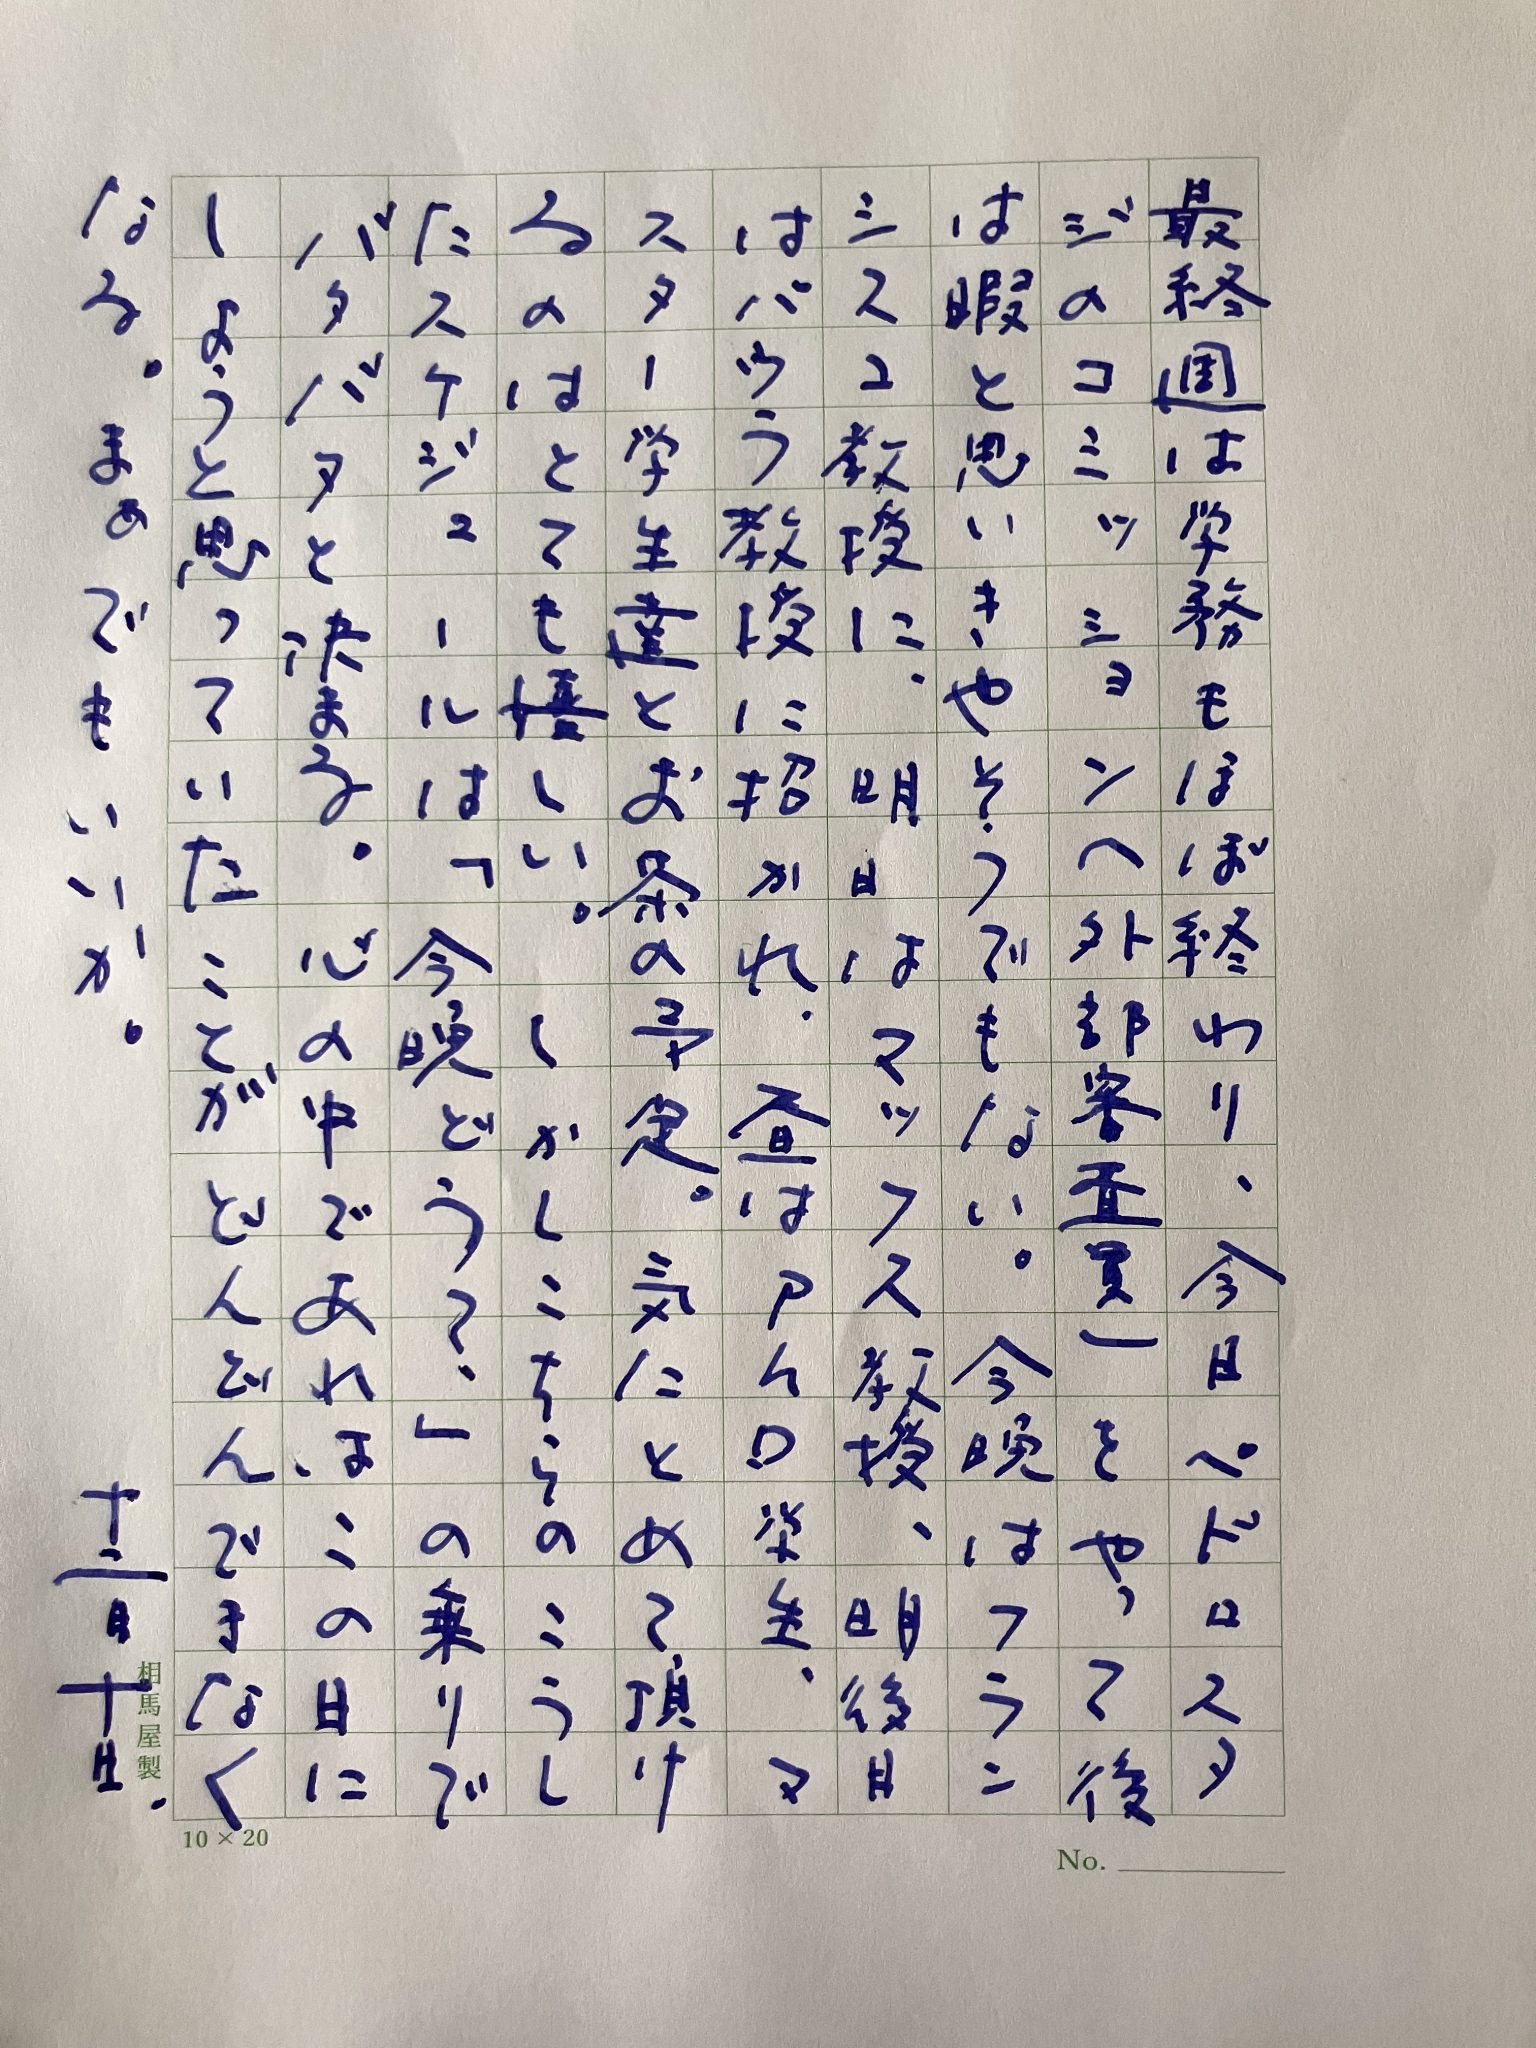 最終週は学務もほぼ終わり、今日ペドロスタ
ジのコミッションへ外部審査員一をやって後
は暇と思いきやそうでもない。今晩はフラン
シスコ教授に、明日はマッフス教授、明後日
はバウう教授に招かれ、昼はアんロ学生、マ
スター学生達とお茶の予定。気にとめて頂け
るのはとても嬉しい。しかしこちらのこうし
たスケジュールは「今晩どう?」のの乗りで
バタバタと決まる。心の中であれはこの日に
しようと思っていたことがどんどんできなく
なる。まあでもいいが。
十二月十日.
相馬屋製
10×20
No.